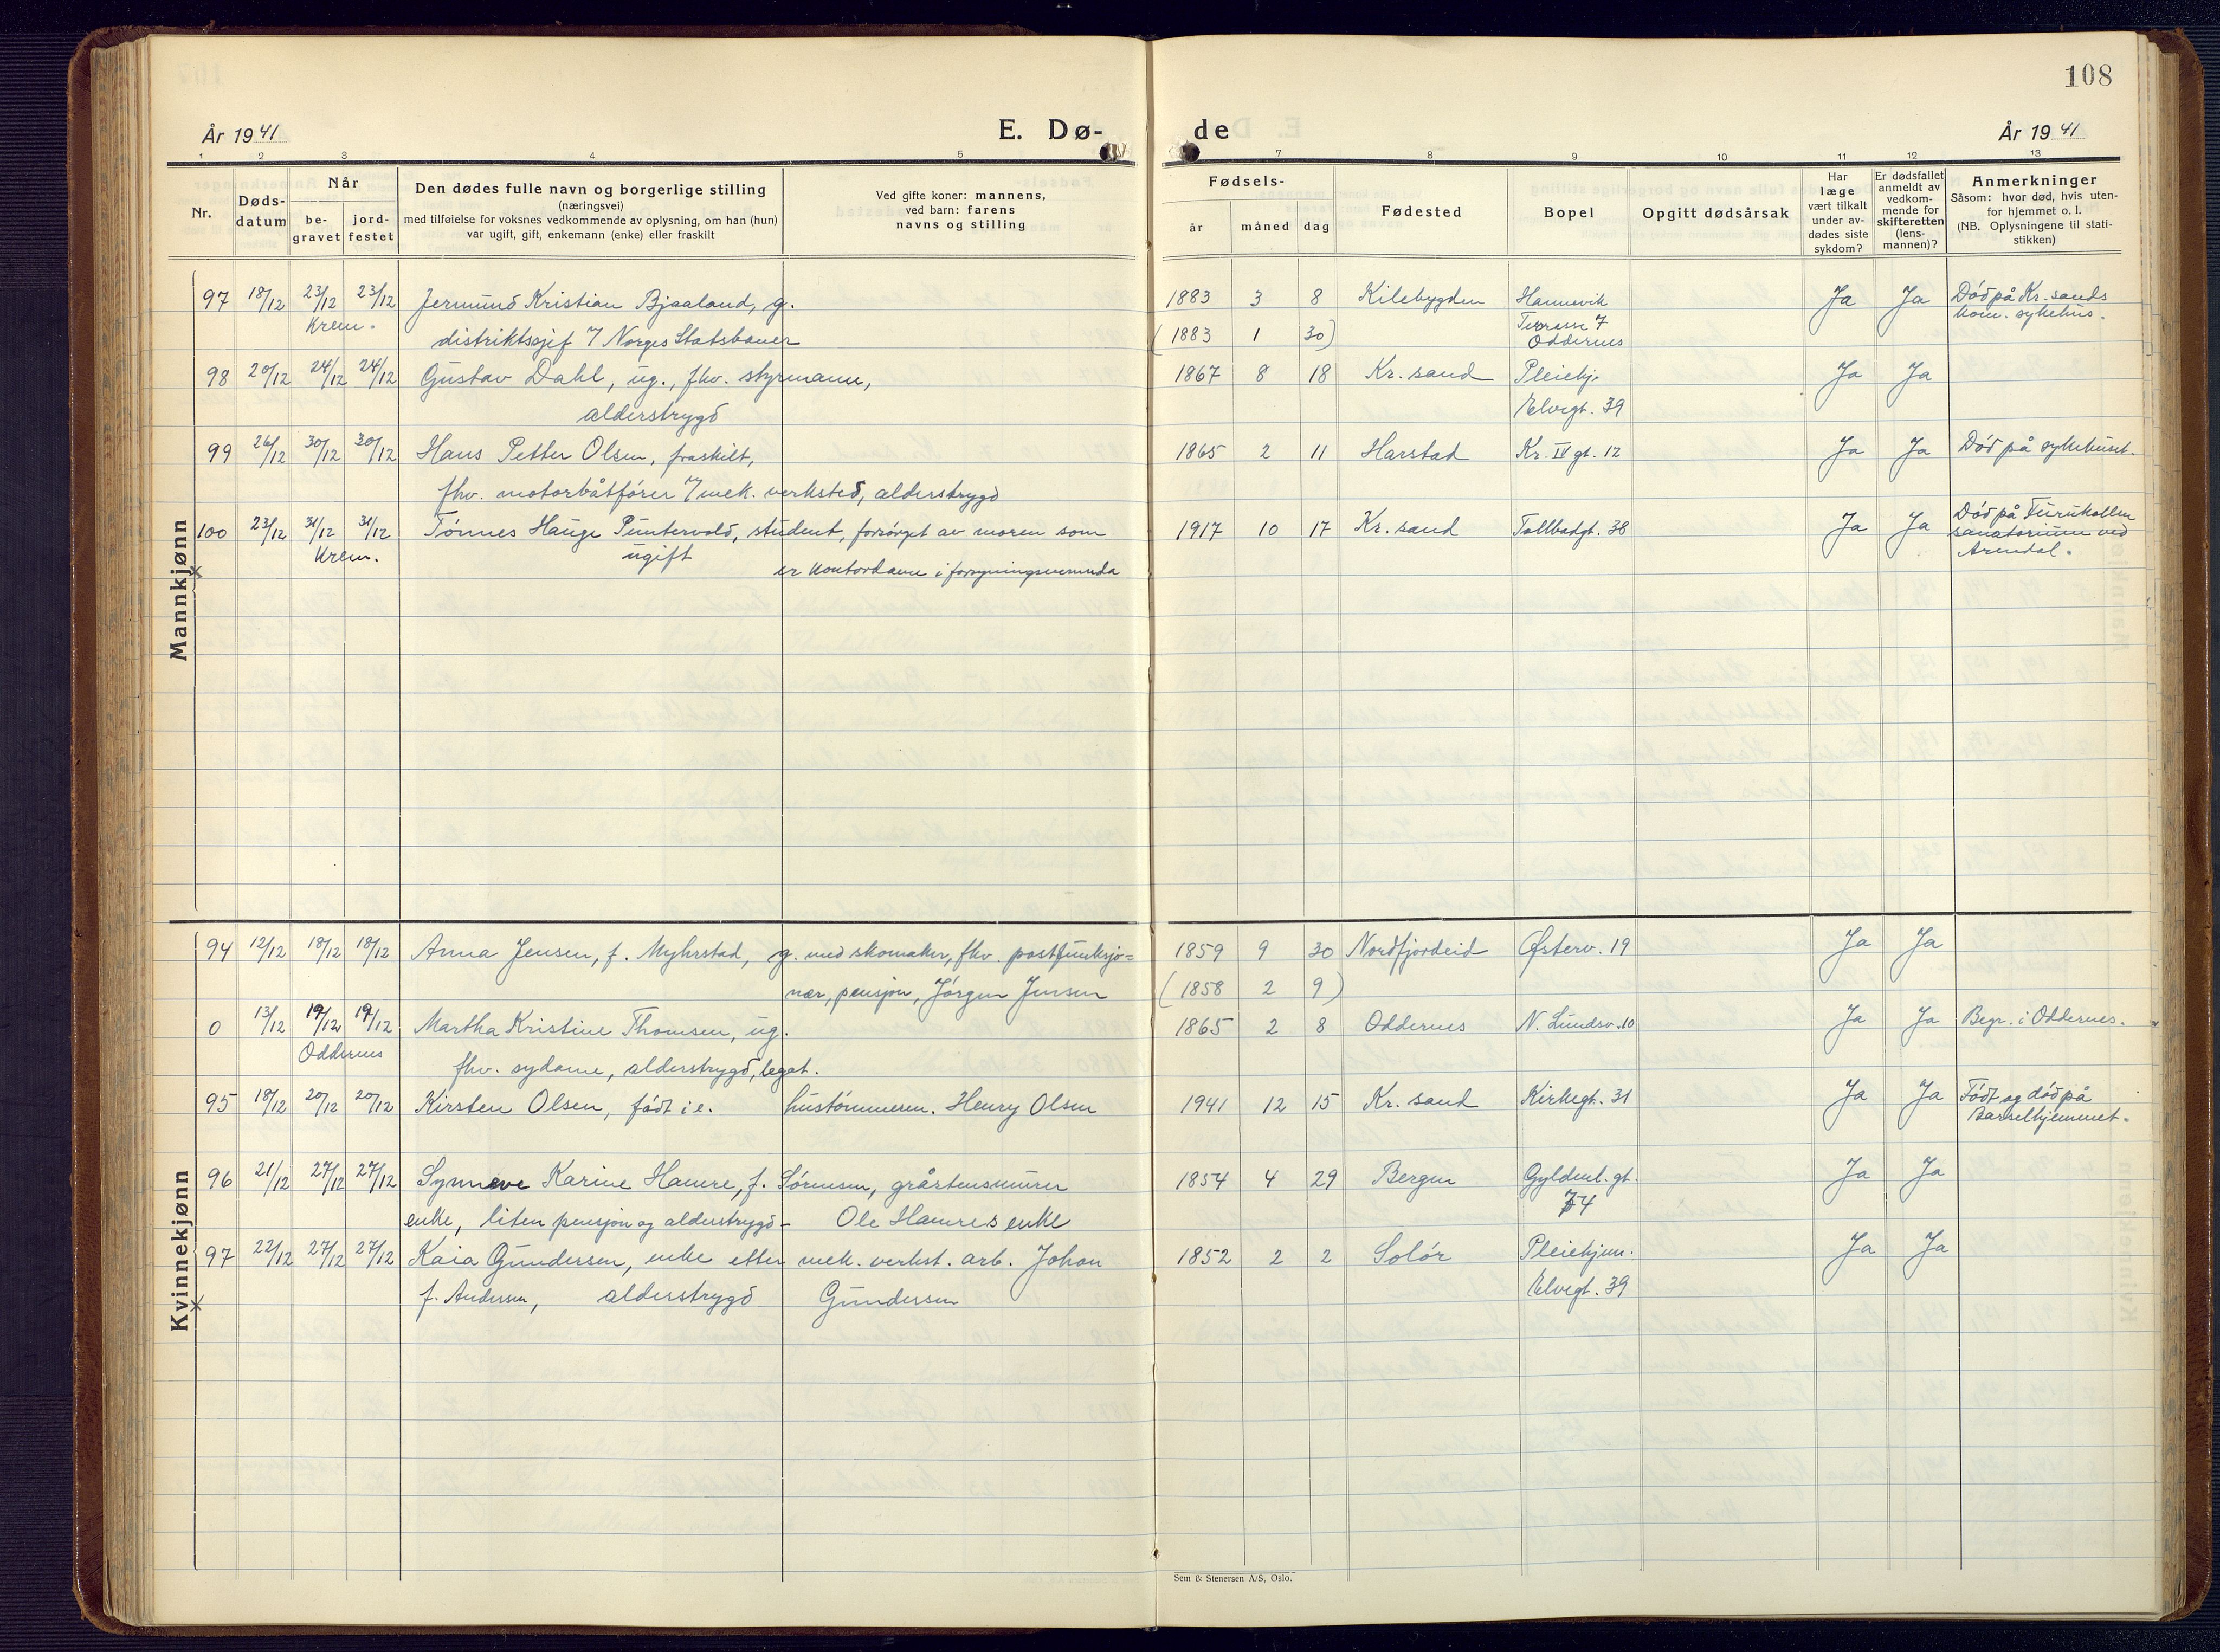 108
År 1941
E. Dø-
de
År 1941
1 2 3 4 5 7 8 9 10 11 12 13
Nr.
Døds-
datum
Når
be-
gravet
jord-
festet
Den dødes fulle navn og borgerlige stilling
(næringsvei)
med tilføielse for voksnes vedkommende av oplysning, om han (hun)
var ugift, gift, enkemann (enke) eller fraskilt
Ved gifte koner: mannens,
ved barn: farens
navns og stilling
Fødsels-
år måned dag
Fødested
Bopel
Opgitt dødsårsak
Har
læge
vært tilkalt
under av-
dødes siste
sykdom?
Er dødsfallet
anmeldt av
vedkom-
mende for
skifteretten
(lens-
mannen)?
Anmerkninger
Såsom: hvor død, hvis uten-
for hjemmet o. l.
(NB. Oplysningene til stati-
stikken)
Mannkjønn
97 18/12 23/12 23/12 Jermund Kristian Bjaaland, g. 1883 3 8 Kilebygden Hannevik Ja Ja Død på Kr.sands
Krem. distriktssjef v/ Norges Statsbaner (1883 1 30) Terrasse 7 kom. sykehus.
Oddernes
98 20/12 24/12 24/12 Gustav Dahl, ug., fhv. styrmann, 1867 8 18 Kr.sand Pleiehj. Ja Ja
alderstrygd Elvegt. 39
99 26/12 30/12 30/12 Hans Petter Olsen, fraskilt, 1865 2 11 Harstad Kr. IV gt. 12 Ja Ja Død på sykehuset.
fhv. motorbåtfører v/ mek. verksted, alderstrygd
100 23/12 31/12 31/12 Tønnes Hauge Puntervold, student, forsørget av moren som 1917 10 17 Kr.sand Tollbodgt. 38 Ja Ja Død på Furukollen
Krem. ugift er kontordame i forsyningsnemnda sanatorium ved
Arendal.
Kvinnekjønn
94 12/12 18/12 18/12 Anna Jensen, f. Myhrstad, g. med skomaker, fhv. postfunksjo- 1859 9 30 Nordfjordeid Østerv. 19 Ja Ja
nær, pensjon, Jørgen Jensen (1858 2 9)
0 13/12 19/12 19/12 Martha Kristine Thomsen, ug. 1865 2 8 Oddernes N. Lundsv. 10 Ja Ja Begr. i Oddernes.
Oddernes fhv. sydame, alderstrygd, legat.
95 18/12 20/12 20/12 Kirsten Olsen, født i e. hustømmerm. Henry Olsen 1941 12 15 Kr.sand Kirkegt. 31 Ja Ja Født og død på
Barselhjemmet.
96 21/12 27/12 27/12 Synneve Karine Hamre, f. Sørensen, gråstensmurer 1854 4 29 Bergen Gyldenl. gt. Ja Ja
enke, liten pensjon og alderstrygd - Ole Hamres enke 74
97 22/12 27/12 27/12 Kaia Gundersen, enke etter mek. verkst. arb. Johan 1852 2 2 Solør Pleiehjem. Ja Ja
f. Andersen, alderstrygd Gundersen Elvegt. 39
Sem & Stenersen A/S, Oslo.